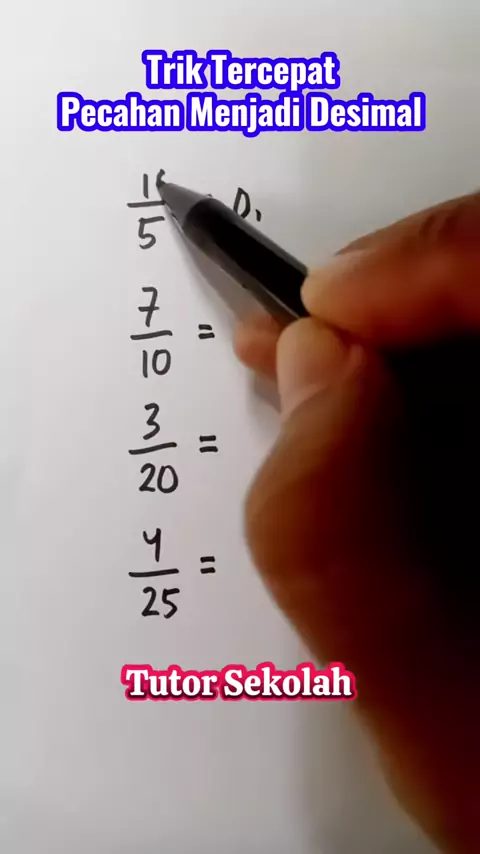 Trik Tercepat
Pecahan Menjadi Desimal
5
0,
7/10 =
3/20 =
4/25 =
Tutor Sekolah